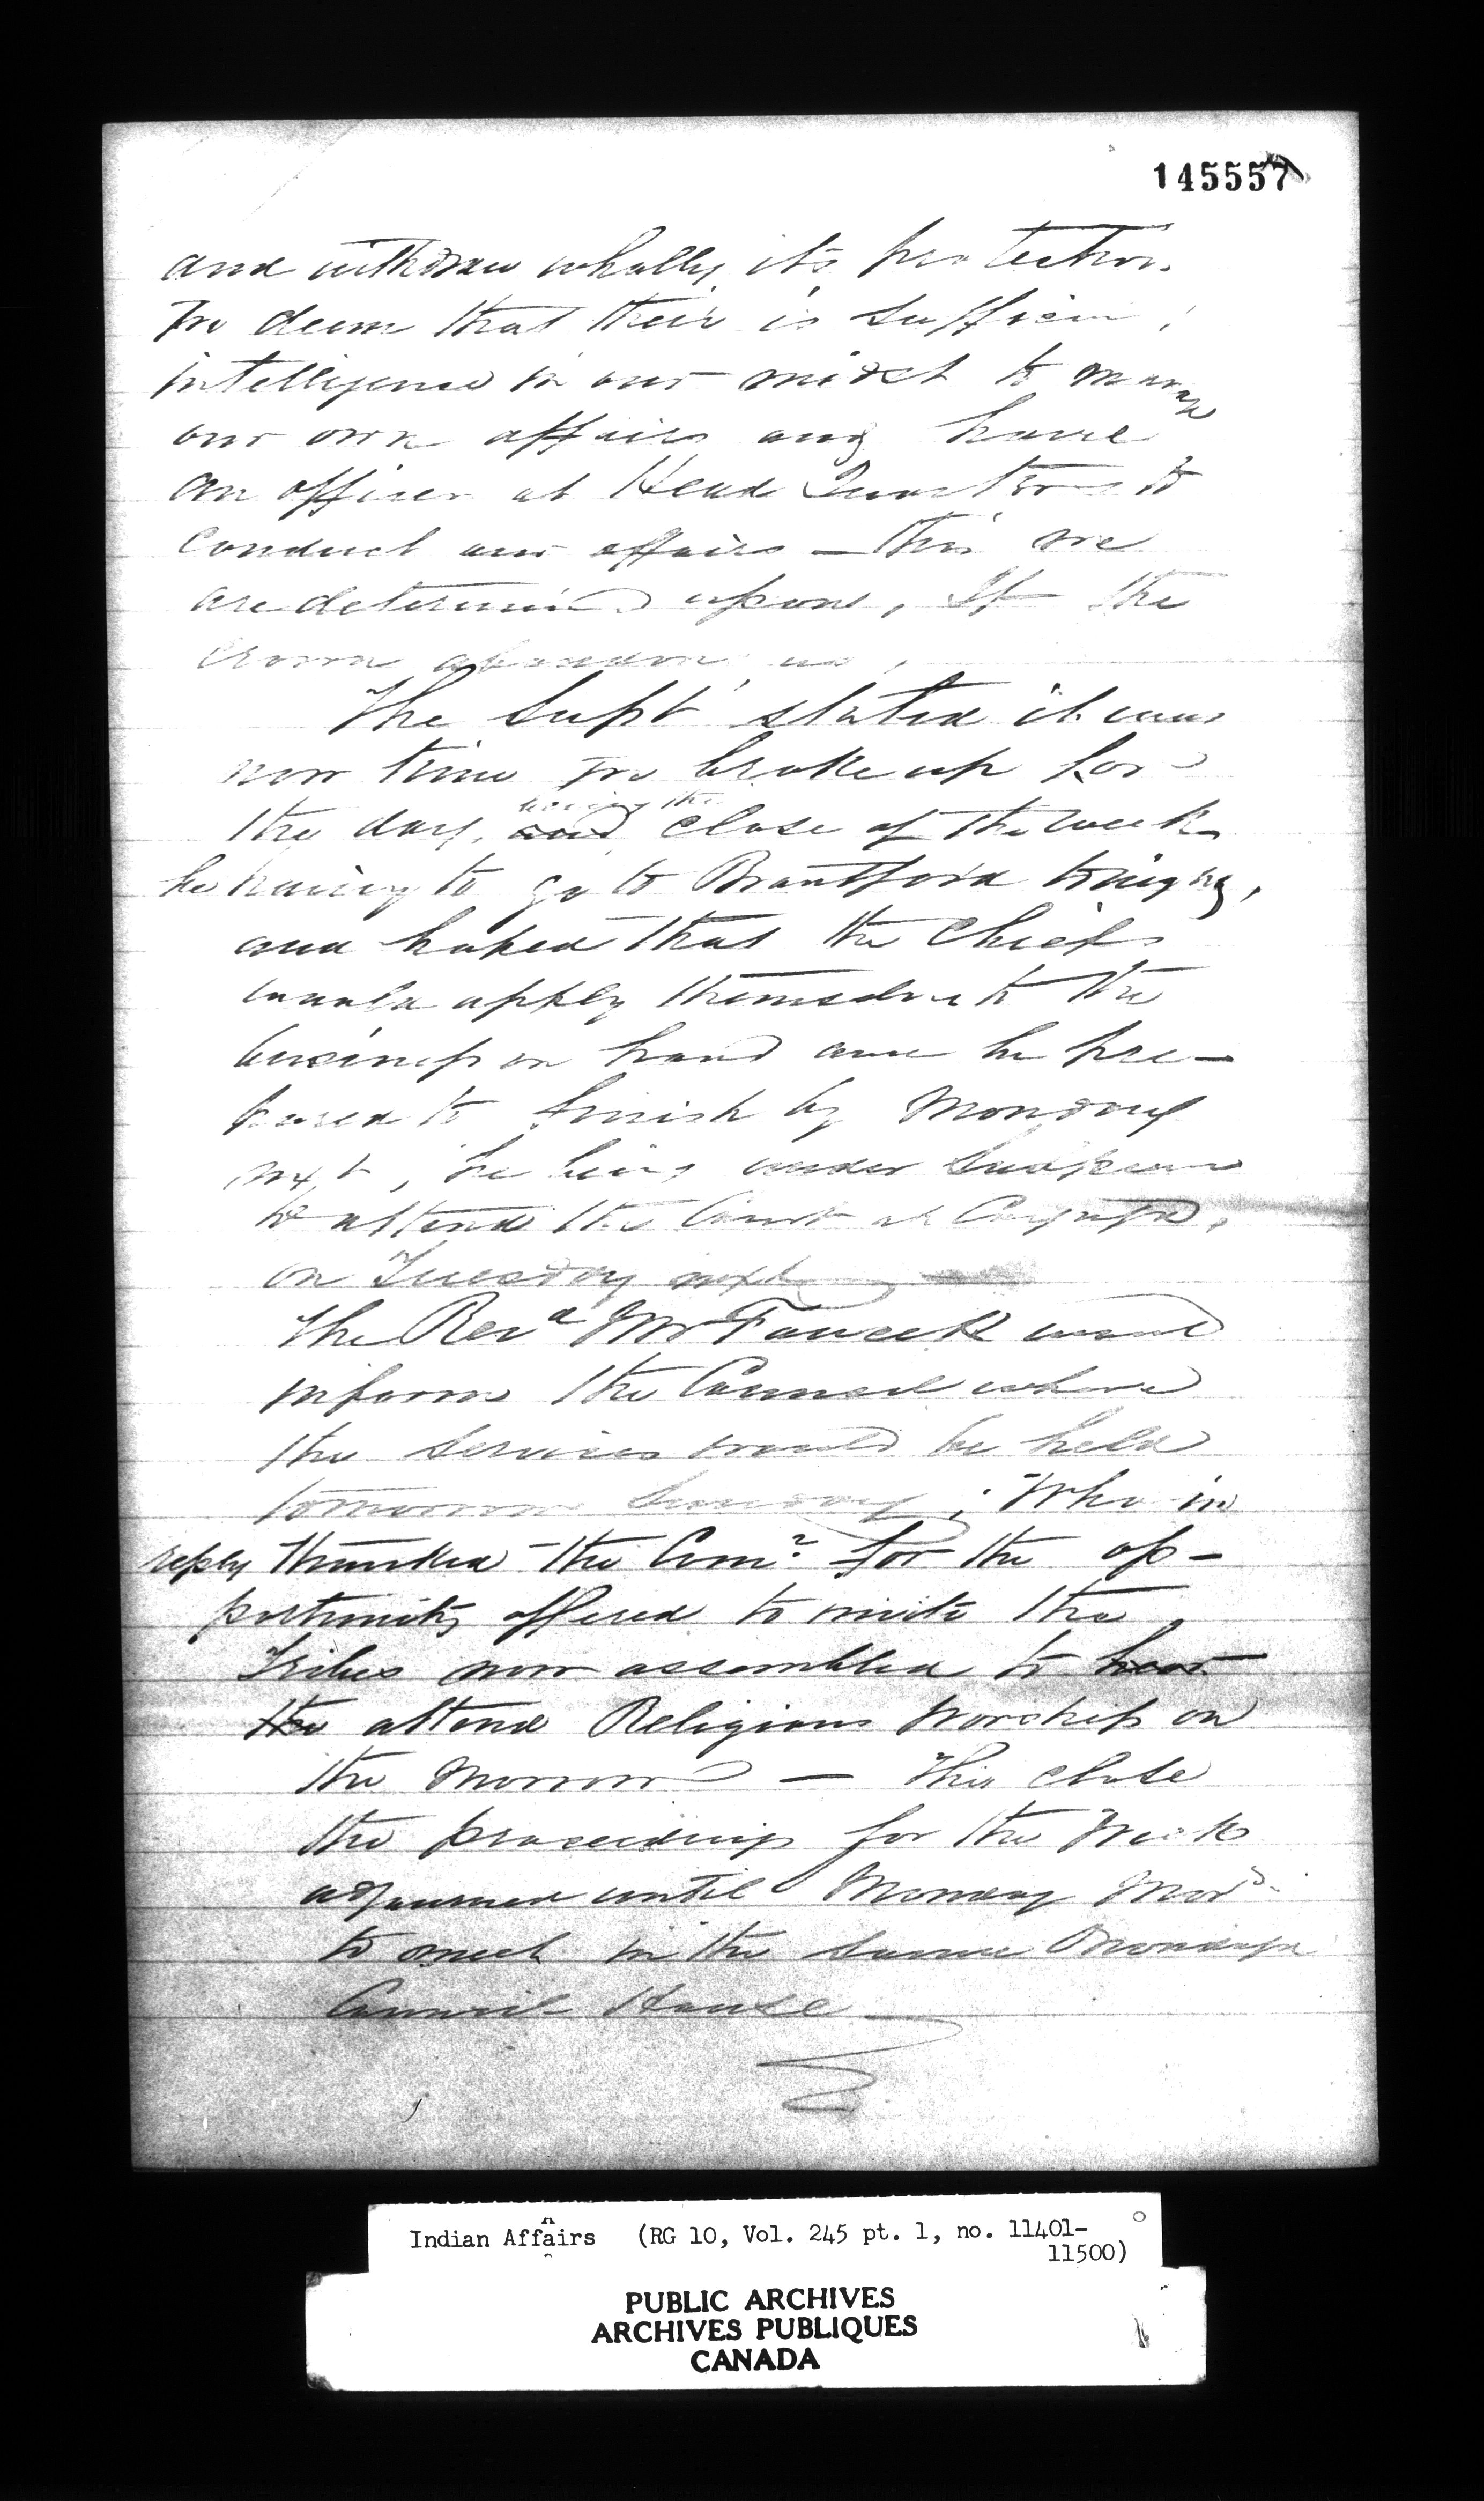 145557
and withdraw wholly its protection.
We deem that their is sufficien
intelligence in our midst to manage
our own affairs and have
an officer at Head Quarters to
conduct our affairs — this we
are determined upon, If the
crown abandon us,
The Supt stated it was
now time we broke up for
the day, being the
and close of the week
he having to go to Brantford tonight,
and hoped that the Chiefs
would apply themselves to the
business on hand and be pre-
pared to finish by Monday
next, he being under Subpoena
to attend the Court at Cayuga,
on Tuesday next
The Revd Mr Fawcett would
inform the Council where
the services would be held
tomorrow Sunday; Who in
reply thanked the Comr for the op-
portunity offered to invite the
Tribes now assembled to hear
the attend Religious Worship on
the Morrow — This close
the proceedings for the Week
adjourned until Monday
to meet in the same Onondaga
Council House
Indian Affairs (RG 10, Vol. 245 pt. 1, no. 11401-
11500)
PUBLIC ARCHIVES
ARCHIVES PUBLIQUES
CANADA